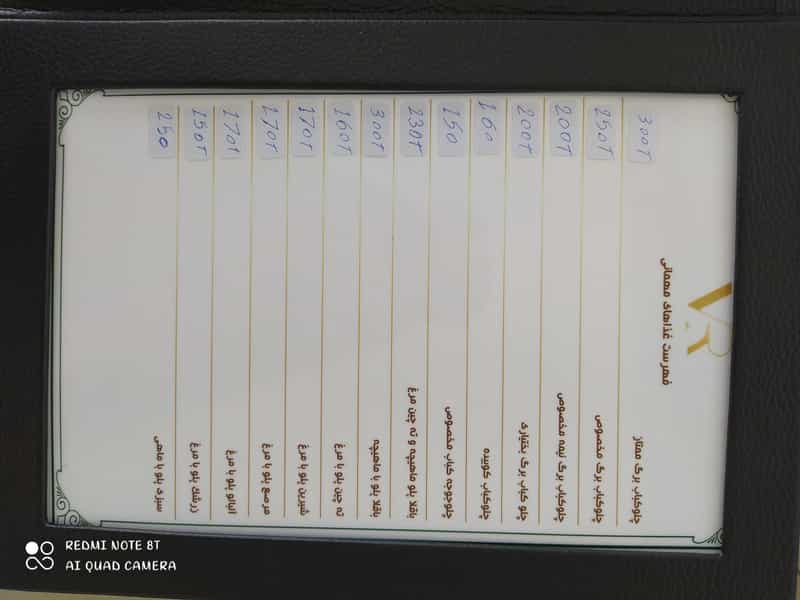 VR
فهرست غذاهای مهمانی
چلوکباب برگ ممتاز 300T
چلوکباب برگ مخصوص 250T
چلوکباب برگ نیمه مخصوص 200T
چلو کباب برگ بختیاری 200T
چلوکباب کوبیده 160
چلوجوجه کباب مخصوص 150
باقلا پلو ماهیچه و ته چین مرغ 230T
باقلا پلو با ماهیچه 300T
ته چین پلو با مرغ 160T
شیرین پلو با مرغ 170T
مرصع پلو با مرغ 170T
آلبالو پلو با مرغ 170T
زرشک پلو با مرغ 150T
سبزی پلو با ماهی 250
REDMI NOTE 8T
AI QUAD CAMERA